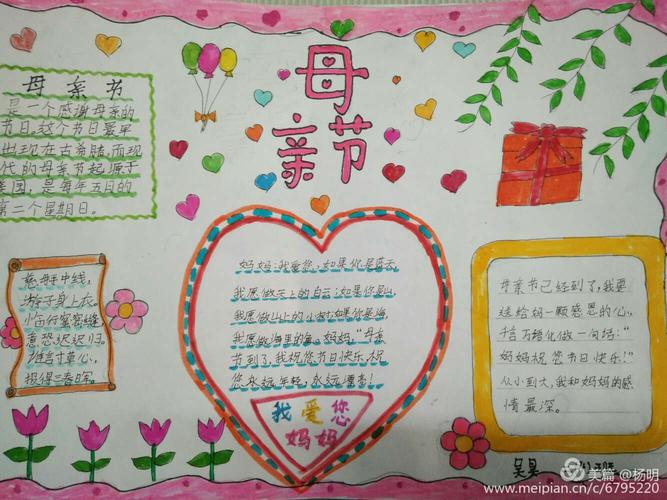 母亲节
母亲节
是一个感谢母亲的
节日,这个节日最早
出现在古希腊,而现
代的母亲节起源于
美国,是每年五月的
第二个星期日。
慈母手中线,
游子身上衣
临行密密缝
意恐迟迟归
谁言寸草心,
报得三春晖。
妈妈:我爱您,如果你是蓝天,
我愿做天上的白云;如果你是山,
我愿做山上的小树;如果你是海,
我愿做海里的鱼。妈妈,"母亲
节到了,我祝您节日快乐,祝
您永远年轻,永远漂亮!
我爱您
妈妈
母亲节已经到了,我要
送给妈一颗感恩的心,
千言万语化做一句话:"
妈妈祝您节日快乐!"
从小到大,我和妈妈的感
情最深。
吴昊
班
美篇@杨明
www.meipian.cn/c/6795220